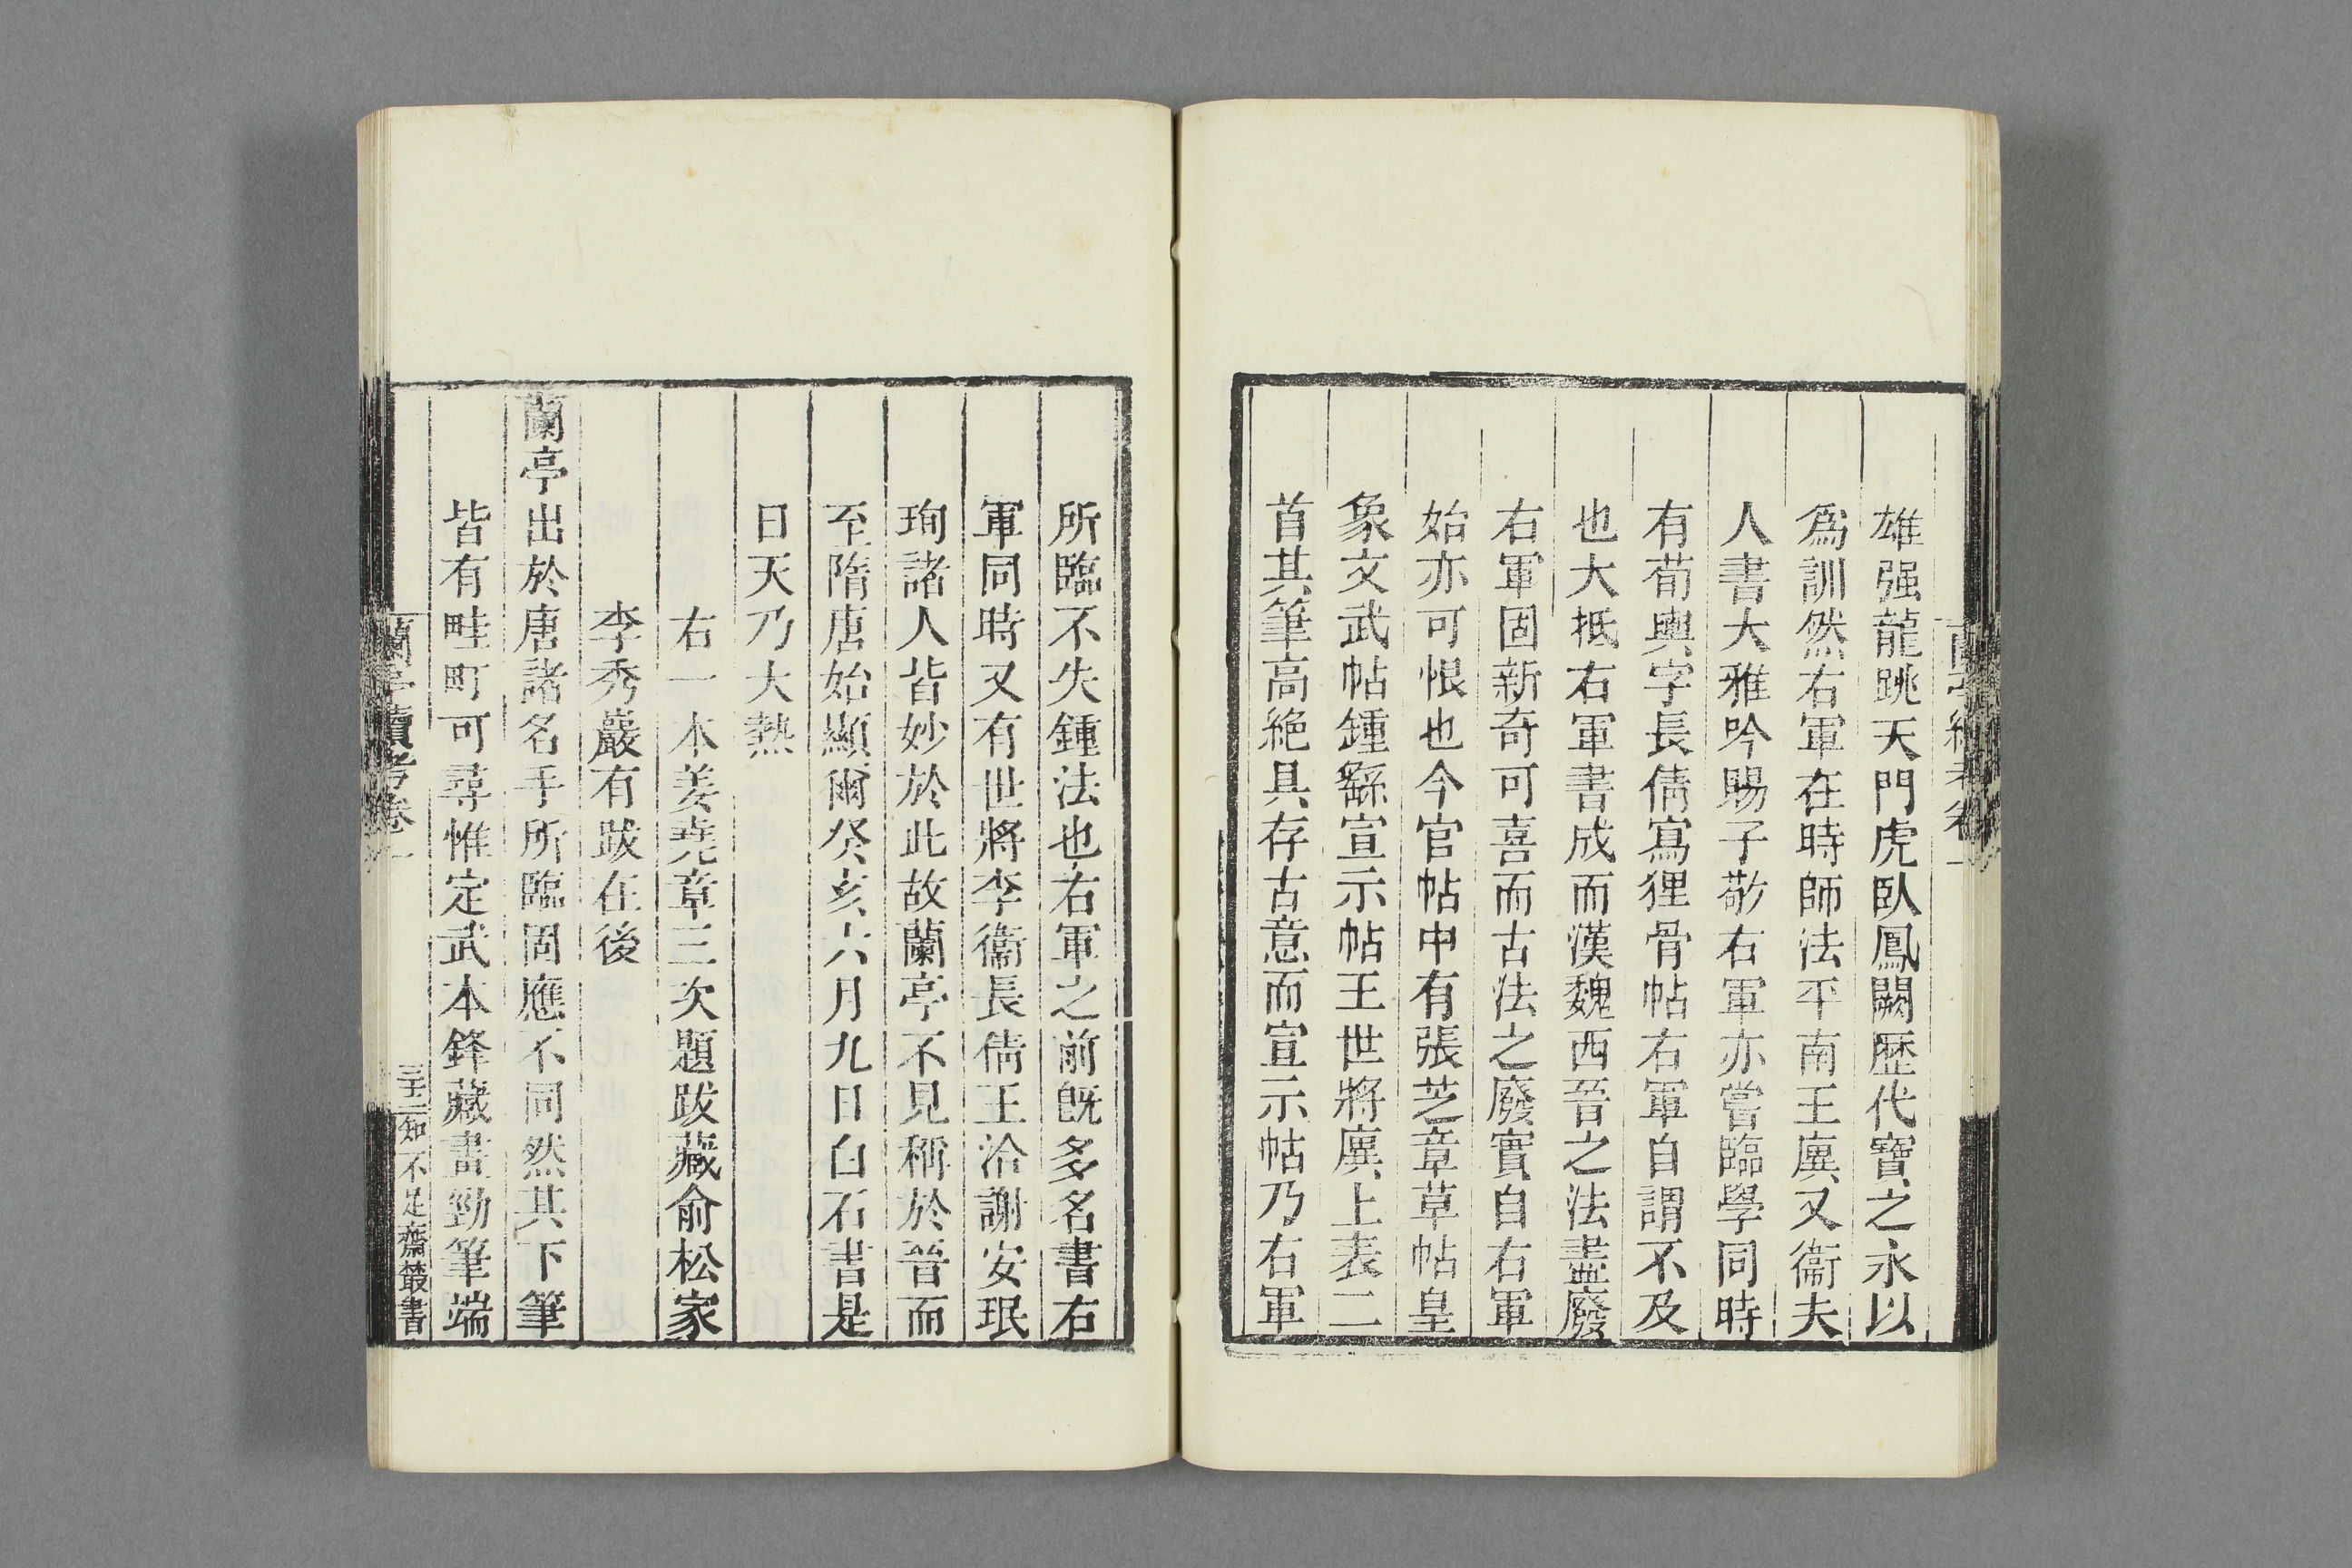 雄强龍跳天門虎臥鳳闕歷代寶之永以
爲訓然右軍在時師法平南王廙又衞夫
人書大雅吟賜子敬右軍亦嘗臨學同時
有荀輿字長倩寫狸骨帖右軍自謂不及
也大抵右軍書成而漢魏西晉之法盡廢
右軍固新奇可喜而古法之廢實自右軍
始亦可恨也今官帖中有張芝章草帖皇
象文武帖鍾繇宣示帖王世將廙上表二
首其筆高絶具存古意而宣示帖乃右軍
所臨不失鍾法也右軍之前旣多名書右
軍同時又有世將李衞長倩王洽謝安珉
珣諸人皆妙於此故蘭亭不見稱於晉而
至隋唐始顯爾癸亥六月九日白石書是
日天乃大熱
右一本姜堯章三次題跋藏俞松家
李秀巖有跋在後
蘭亭出於唐諸名手所臨固應不同然其下筆
皆有畦町可尋惟定武本鋒藏畫勁筆端
蘭亭續考卷一
知不足齋叢書